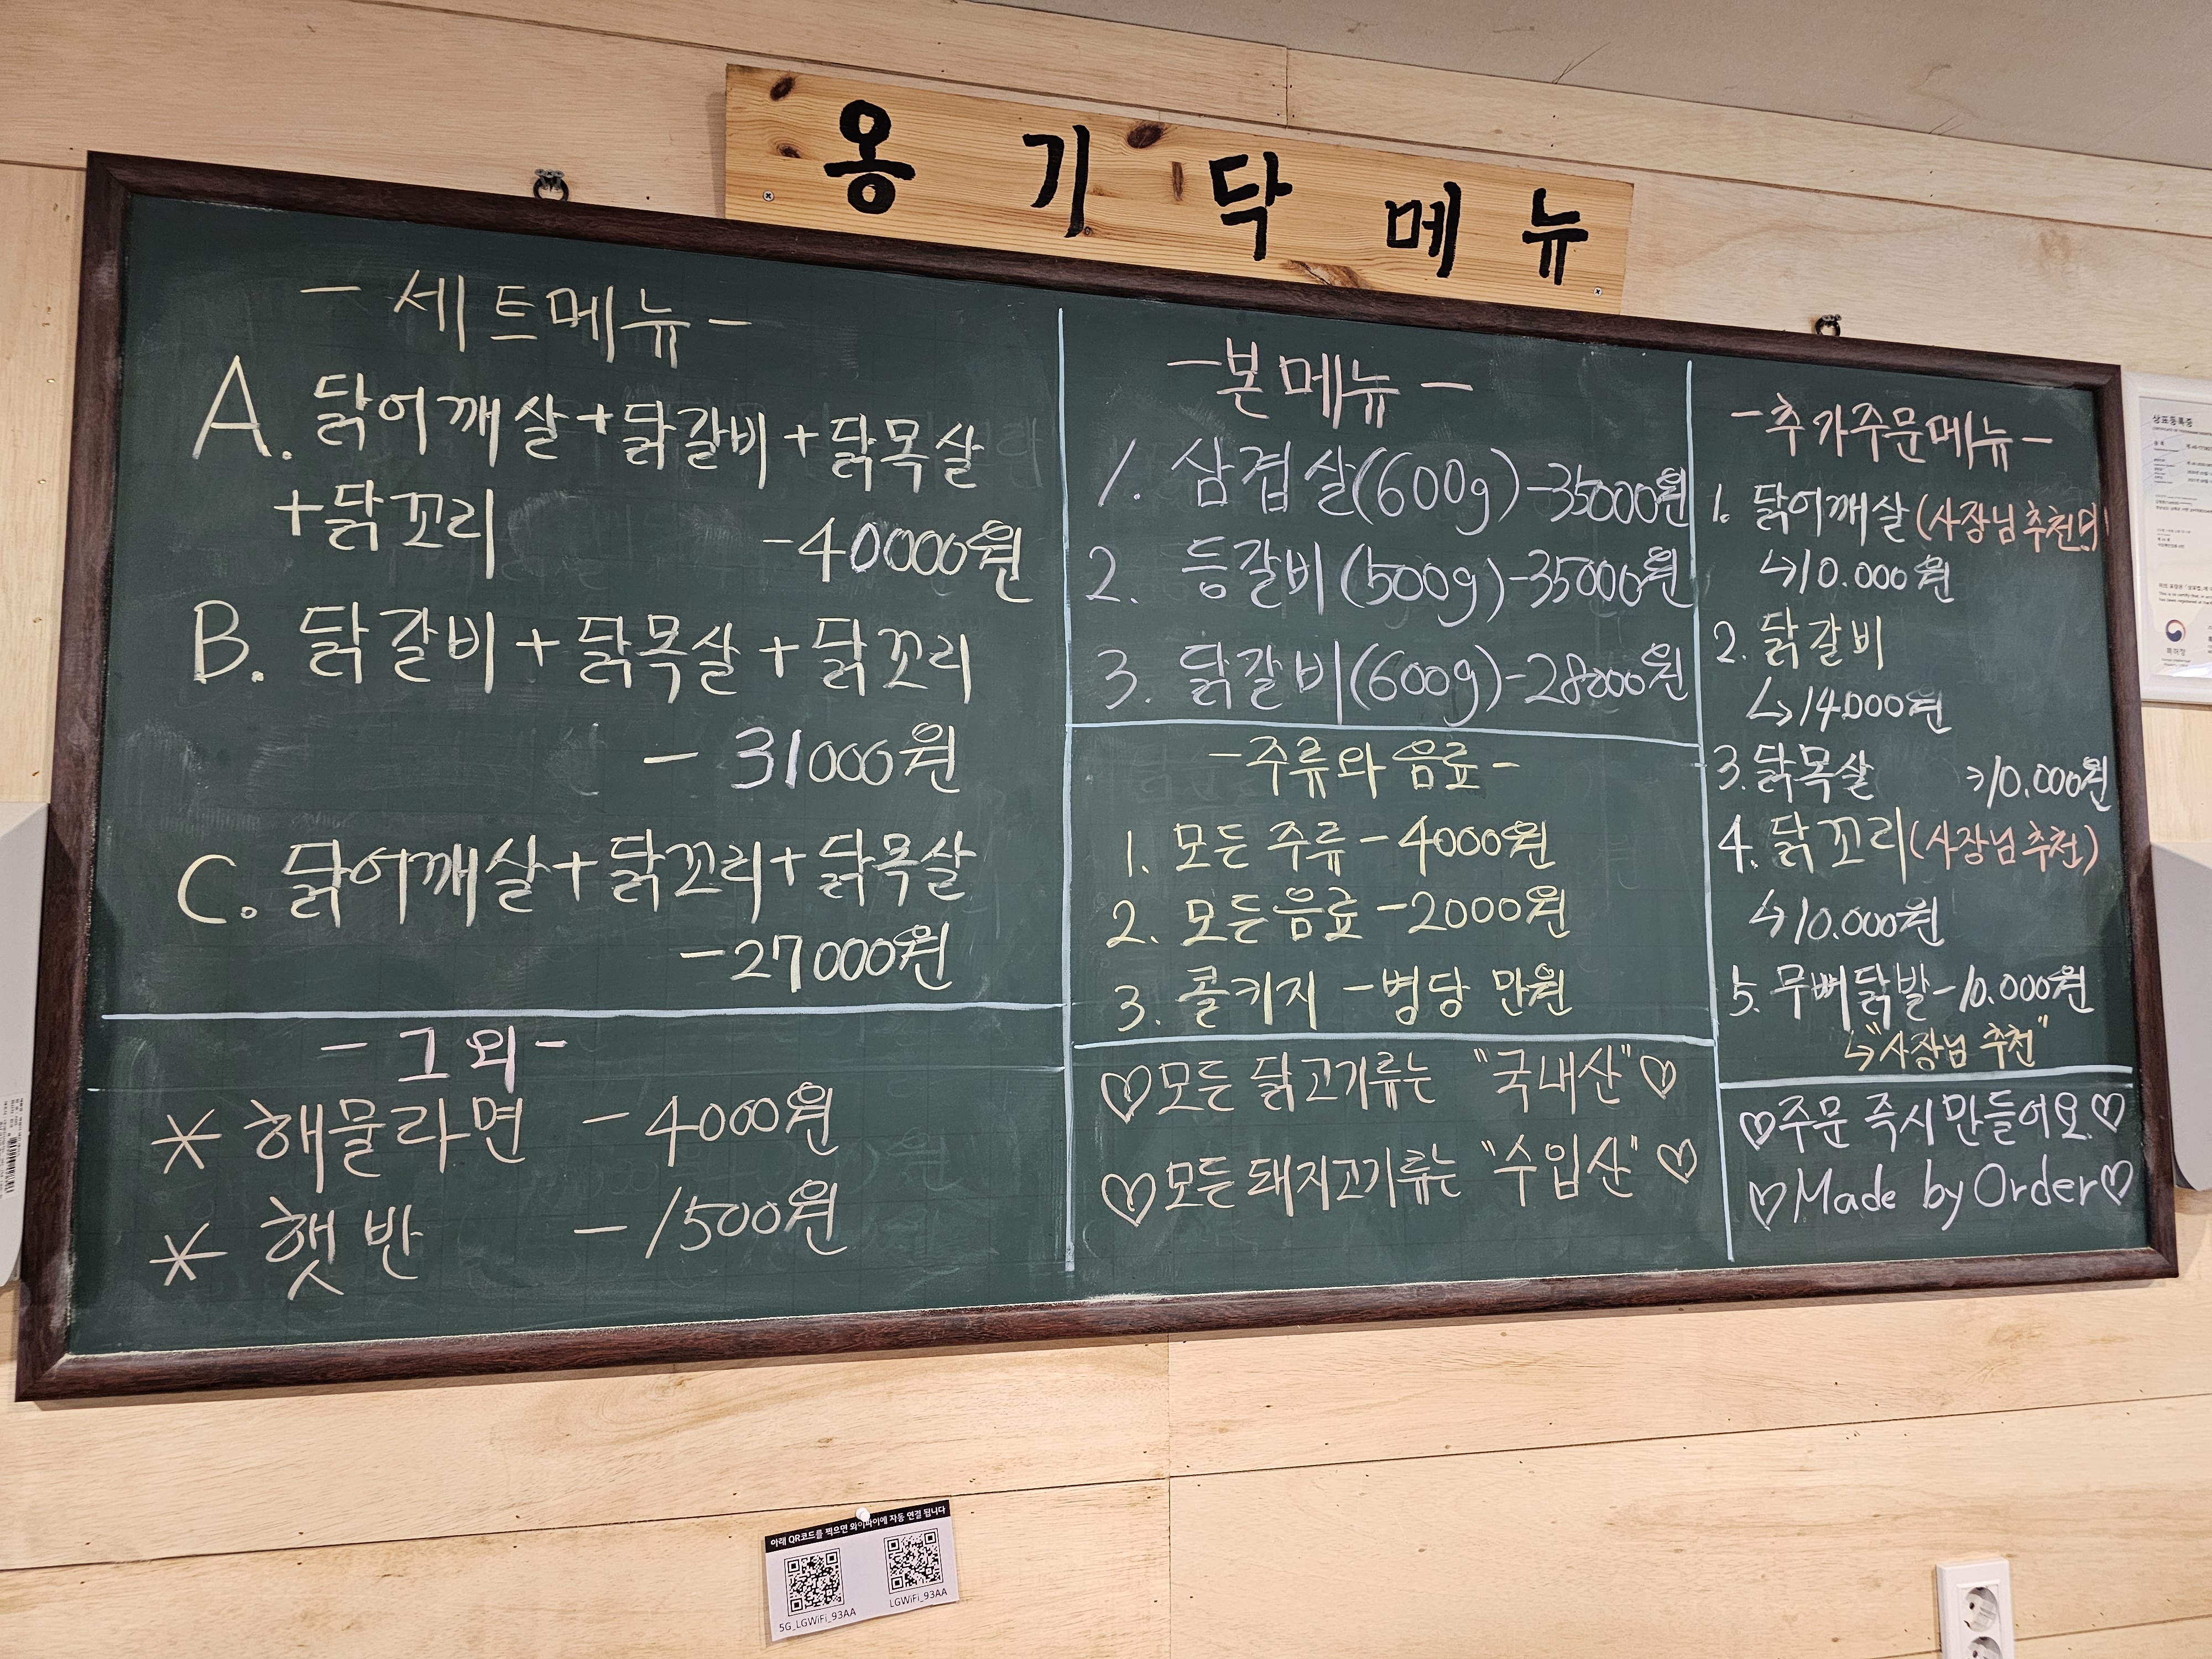 옹기닥 메뉴
-세트메뉴-
A. 닭어깨살+닭갈비+닭목살
+닭꼬리 -40000원
B. 닭갈비+닭목살+닭꼬리
- 31000원
C. 닭어깨살+닭꼬리+닭목살
-27000원
-그외-
* 해물라면 -4000원
* 햇반 -1500원
-본메뉴-
1. 삼겹살(600g)-35000원
2. 등갈비(500g)-35000원
3. 닭갈비(600g)-28000원
-주류와 음료-
1. 모든 주류-4000원
2. 모든음료-2000원
3. 콜키지 -병당 만원
♡모든 닭고기류는 "국내산"♡
♡모든 돼지고기류는 "수입산"♡
-추가주문메뉴-
1. 닭어깨살(사장님추천
↳10.000원
2. 닭갈비
↳14000원
3. 닭목살 →10.000원
4. 닭꼬리(사장님추천)
↳10.000원
5. 무뼈닭발-10.000원
↳"사장님 추천"
♡주문 즉시만들어요♡
♡Made by Order♡
상표등록증
특허청
아래 QR코드를 찍으면 와이파이에 자동 연결 됩니다
5G_LGWiFi_93AA LGWiFi_93AA